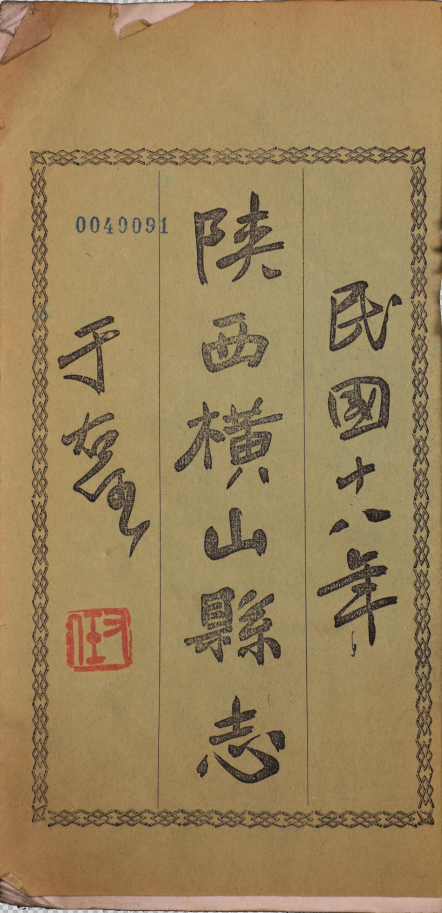 民國十八年
陝西橫山縣志
于右任
右任